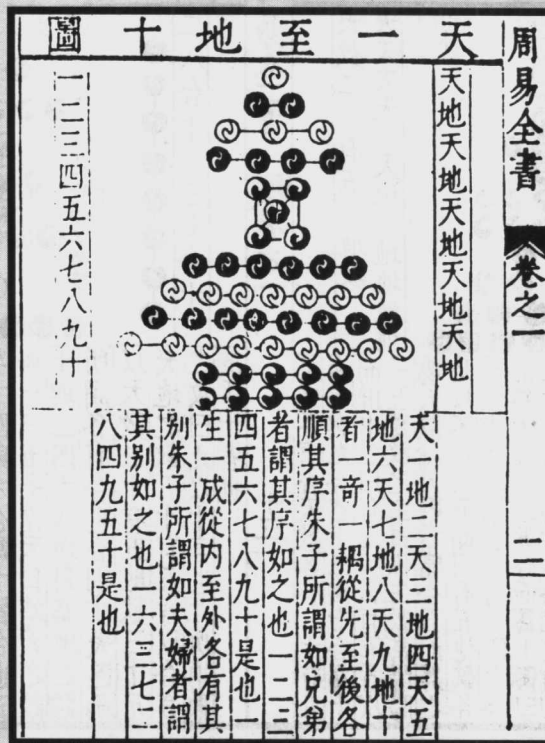 周易全書
卷之一
二
天一至地十圖
天地天地天地天地天地
一二三四五六七八九十
天一地二天三地四天五
地六天七地八天九地十
者一奇一耦從先至後各
順其序朱子所謂如兄弟
者謂其序如之也一二三
四五六七八九十是也一
生一成從内至外各有其
別朱子所謂如夫婦者謂
其別如之也一六二七三
八四九五十是也